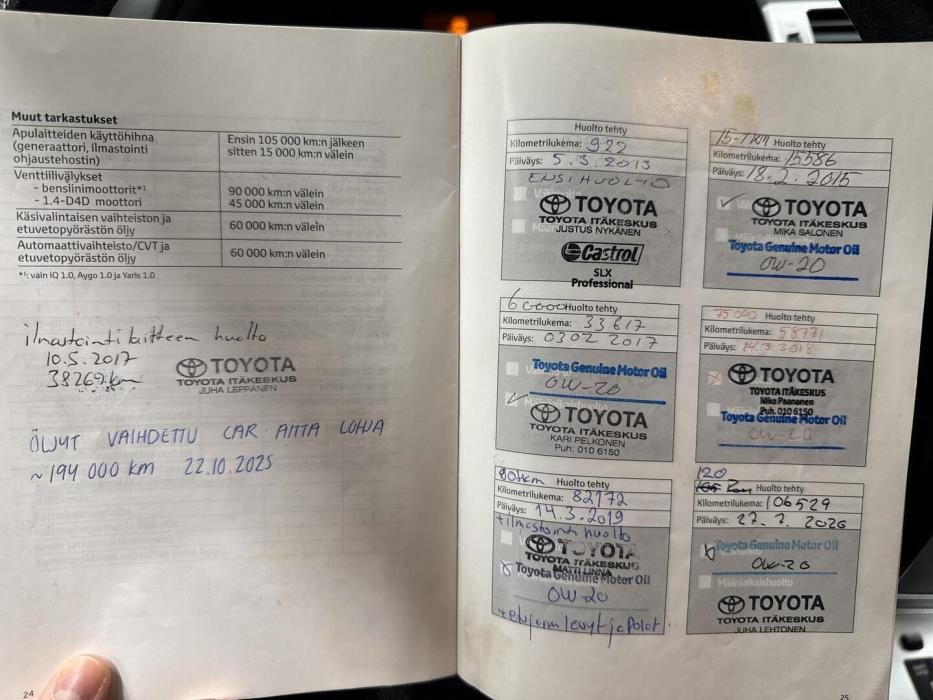 Muut tarkastukset
Apulaitteiden käyttöhihna
(generaattori, ilmastointi
ohjaustehostin)
Ensin 105 000 km:n jälkeen
sitten 15 000 km:n välein
Venttiilivälykset
- bensiinimoottorit*¹
- 1.4-D4D moottori
90 000 km:n välein
45 000 km:n välein
Käsivalintaisen vaihteiston ja
etuvetopyörästön öljy
60 000 km:n välein
Automaattivaihteisto/CVT ja
etuvetopyörästön öljy
60 000 km:n välein
*¹: vain iQ 1.0, Aygo 1.0 ja Yaris 1.0
ilmastointilaitteen huolto
10.5.2017
38269 km
TOYOTA
TOYOTA ITÄKESKUS
JUHA LEPPÄNEN
ÖLJYT VAIHDETTU CAR-AITTA LOHJA
~194 000 KM 22.10.2025
24
Huolto tehty
Kilometrilukema: 922
Päiväys: 5.3.2013
ENSIHUOLTO
TOYOTA
TOYOTA ITÄKESKUS
JUSTUS NYKÄNEN
Castrol
SLX
Professional
15-/1KM Huolto tehty
Kilometrilukema: 15586
Päiväys: 18.2.2015
TOYOTA
TOYOTA ITÄKESKUS
MIKA SALONEN
Toyota Genuine Motor Oil
0W-20
60000 Huolto tehty
Kilometrilukema: 33617
Päiväys: 0302 2017
Toyota Genuine Motor Oil
0W-20
TOYOTA
TOYOTA ITÄKESKUS
KARI PELKONEN
Puh. 010 6150
75000 Huolto tehty
Kilometrilukema: 58771
Päiväys: 14.3.2018
TOYOTA
TOYOTA ITÄKESKUS
Niko Paananen
Puh. 010 6150
Toyota Genuine Motor Oil
0W-20
90tkm Huolto tehty
Kilometrilukema: 82172
Päiväys: 14.3.2019
+ilmastointi huolto
TOYOTA
TOYOTA ITÄKESKUS
MATTI LINNA
Toyota Genuine Motor Oil
0W-20
+etujarrulevyt ja palat
120
Huolto tehty
Kilometrilukema: 106529
Päiväys: 27.7.2020
Toyota Genuine Motor Oil
0W-20
Määräaikaishuolto
TOYOTA
TOYOTA ITÄKESKUS
JUHA LEHTONEN
25